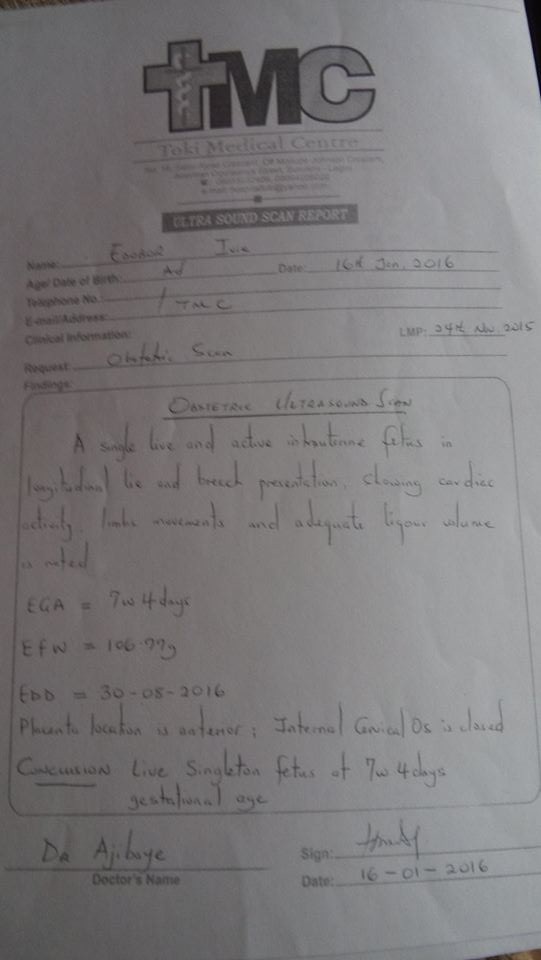 TMC
Toki Medical Centre
ULTRA SOUND SCAN REPORT
Name: Ivie
Age/ Date of Birth: Ad Date: 16th Jan, 2016
Telephone No.:
E-mail/Address: TMC
Clinical Information: LMP: 24th Nov. 2015
Request: Obstetric Scan
Findings:
OBSTETRIC ULTRASOUND SCAN
A single live and active intrauterine fetus in
longitudinal lie and breech presentation, showing cardiac
activity, limbs movements and adequate liqour volume
is noted
EGA = 7w 4days
EFW = 106.77g
EDD = 30-08-2016
Placenta location is anterior; Internal Cervical Os is closed
CONCLUSION Live Singleton fetus at 7w 4days
gestational age
Dr Ajiboye
Doctor's Name
Sign:
Date: 16-01-2016